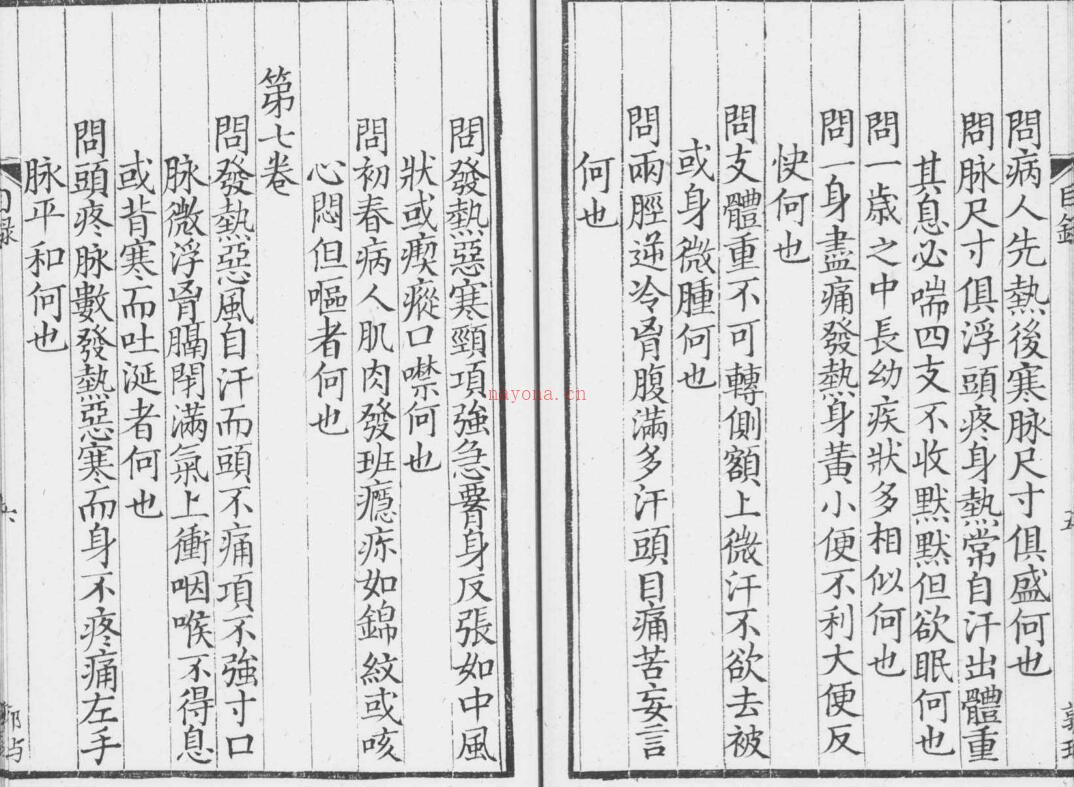 目錄
五
問病人先熱後寒脉尺寸俱盛何也
問脉尺寸俱浮頭疼身熱常自汗出體重
其息必喘四支不收默默但欲眠何也
問一歲之中長幼疾狀多相似何也
問一身盡痛發熱身黃小便不利大便反
快何也
問支體重不可轉側額上微汗不欲去被
或身微腫何也
問兩脛逆冷胷腹滿多汗頭目痛苦妄言
何也
問發熱惡寒頸項強急腰身反張如中風
狀或瘈瘲口噤何也
問初春病人肌肉發班癮疹如錦紋或咳
心悶但嘔者何也
第七卷
問發熱惡風自汗而頭不痛項不強寸口
脉微浮胷膈閉滿氣上衝咽喉不得息
或背寒而吐涎者何也
問頭疼脉數發熱惡寒而身不疼痛左手
脉平和何也
目錄
六
nayona.cn